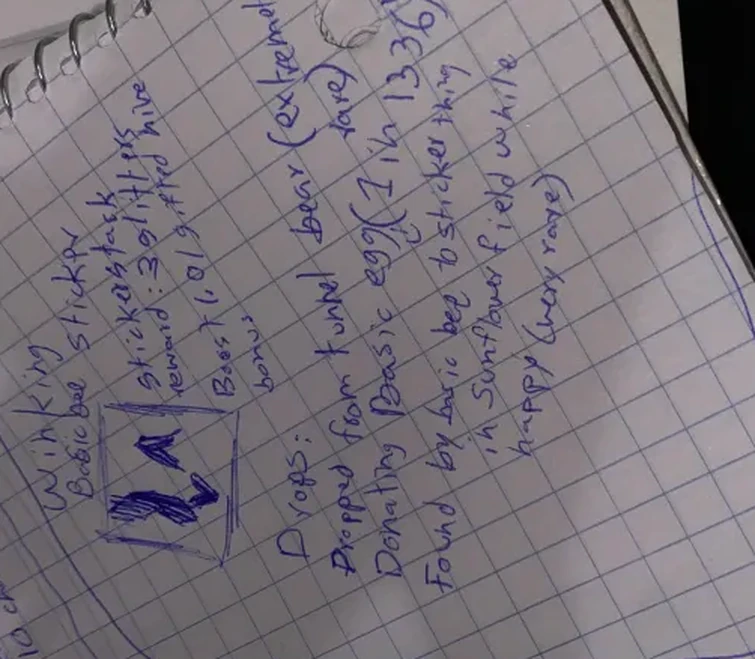 Winking
Basic bee sticker
Stickerstack
reward: 3 glitters
Boost 1,01 gifted hive
bonus
Drops:
Dropped from tunnel bear (extremely
rare)
Donating Basic egg (1 in 1336)
Found by basic bee b sticker thing
in Sunflower field while
happy (very rare)
10